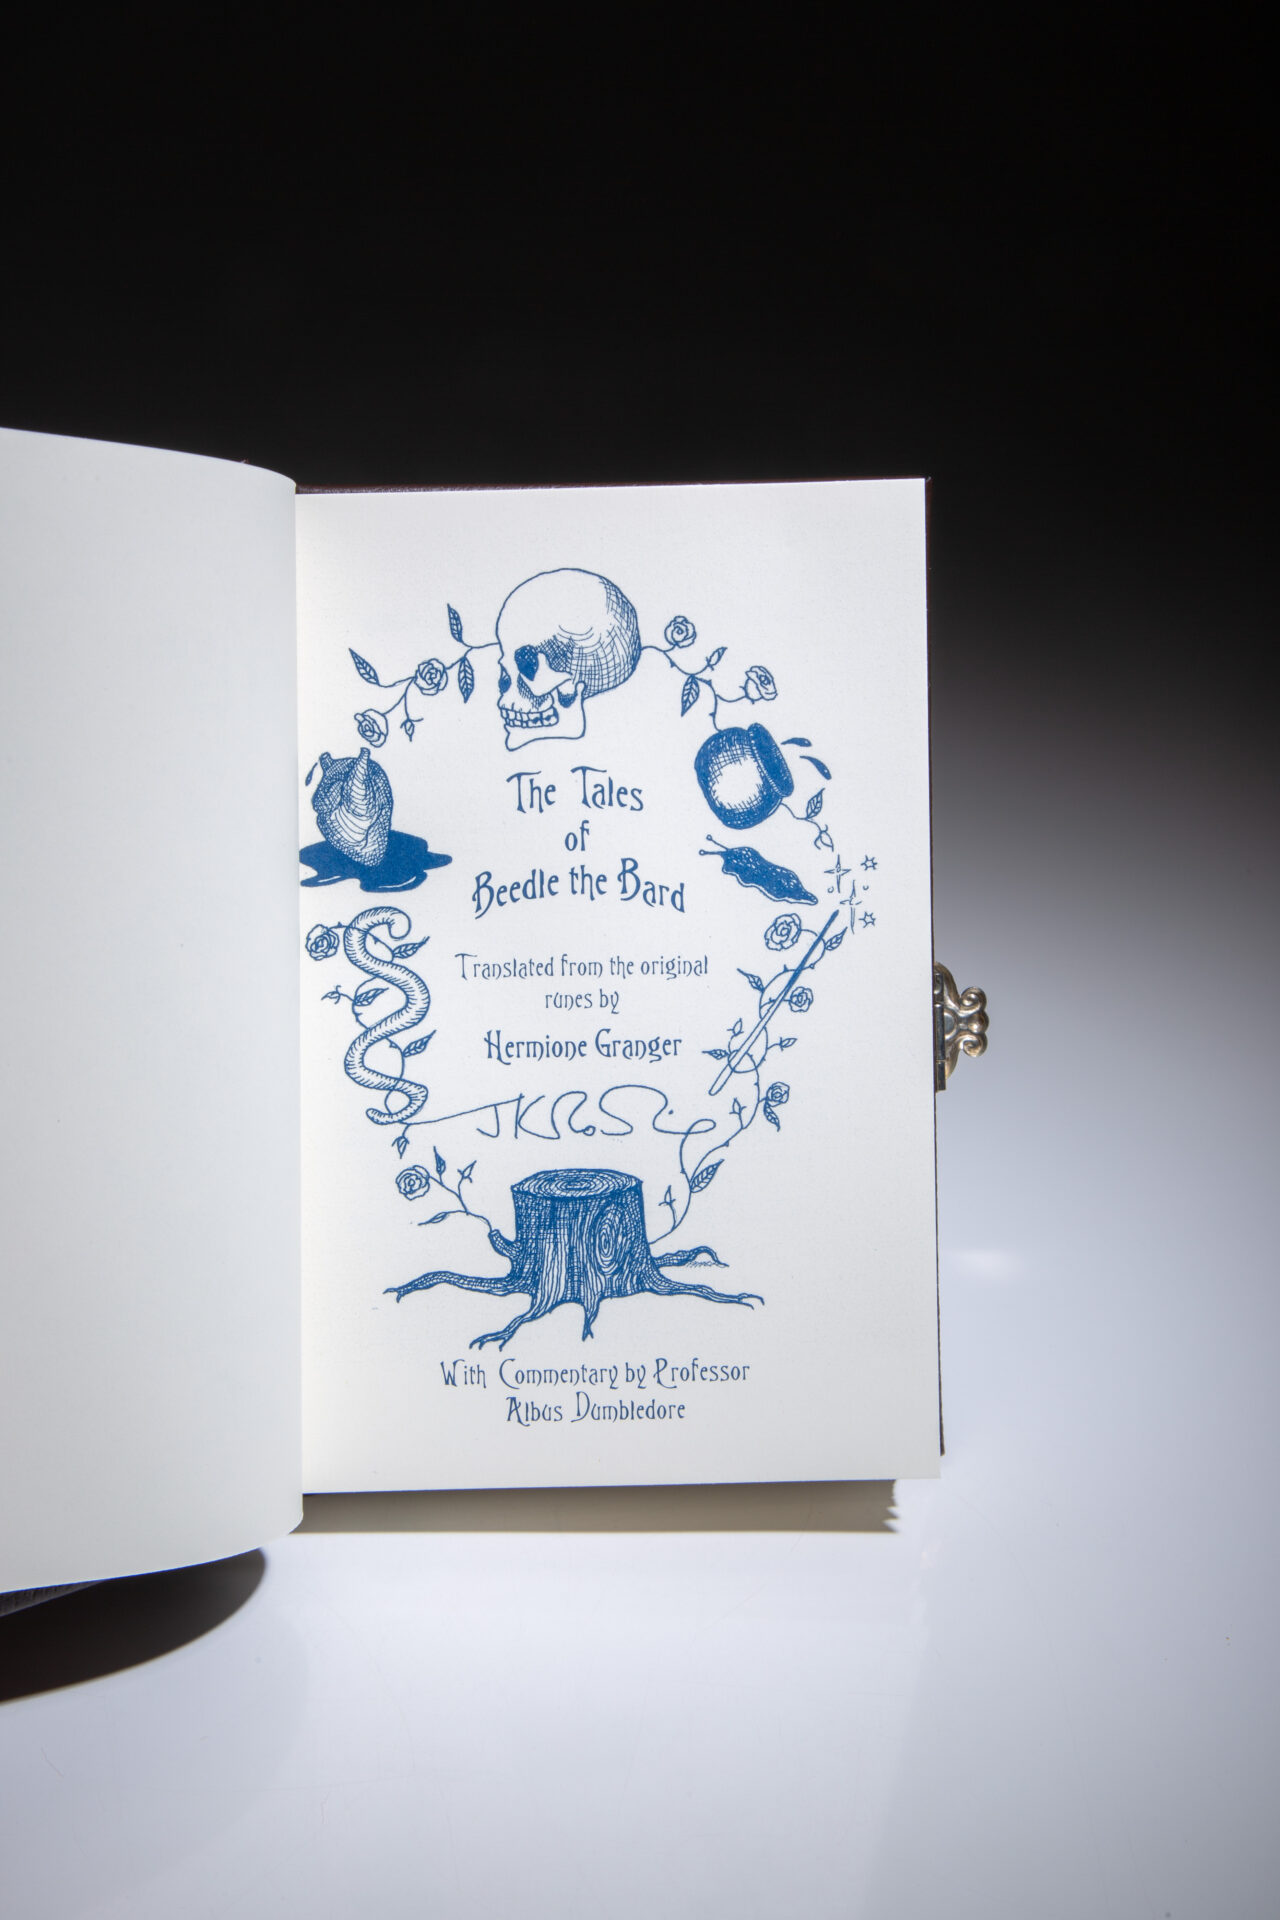 The Tales
of
Beedle the Bard
Translated from the original
runes by
Hermione Granger
JKRowling
With Commentary by Professor
Albus Dumbledore